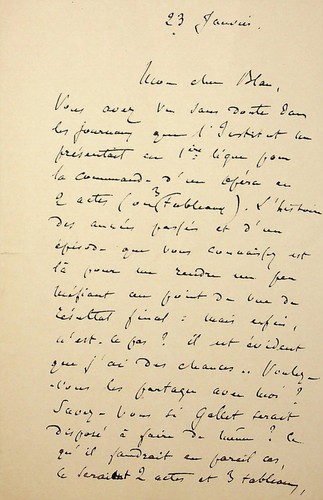 23 Janvier.
Mon cher Blau,
Vous avez vu sans doute dans
les journaux que l'Institut me
présentait en 1ère ligne pour
la commande d'un opéra en
2 actes (ou 3 tableaux). L'histoire
des années passées et d'un
épisode que vous connaissez est
là pour me rendre un peu
méfiant au point de vue du
résultat final : mais enfin,
n'est-ce pas ? il est évident
que j'ai des chances .. Voulez-
-vous les partager avec moi ?
Savez-vous si Gallet serait
disposé à faire de même ? Ce
qu'il faudrait en pareil cas,
ce seraient 2 actes et 3 tableaux,